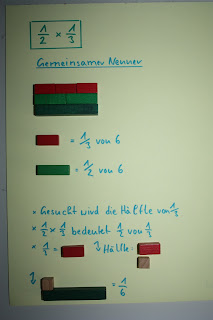 1/2 × 1/3
Gemeinsamer Nenner
= 1/3 von 6
= 1/2 von 6
× Gesucht wird die Hälfte von 1/3
× 1/2 × 1/3 bedeutet 1/2 von 1/3
× 1/3 = ↴ Hälfte =
↴
= 1/6